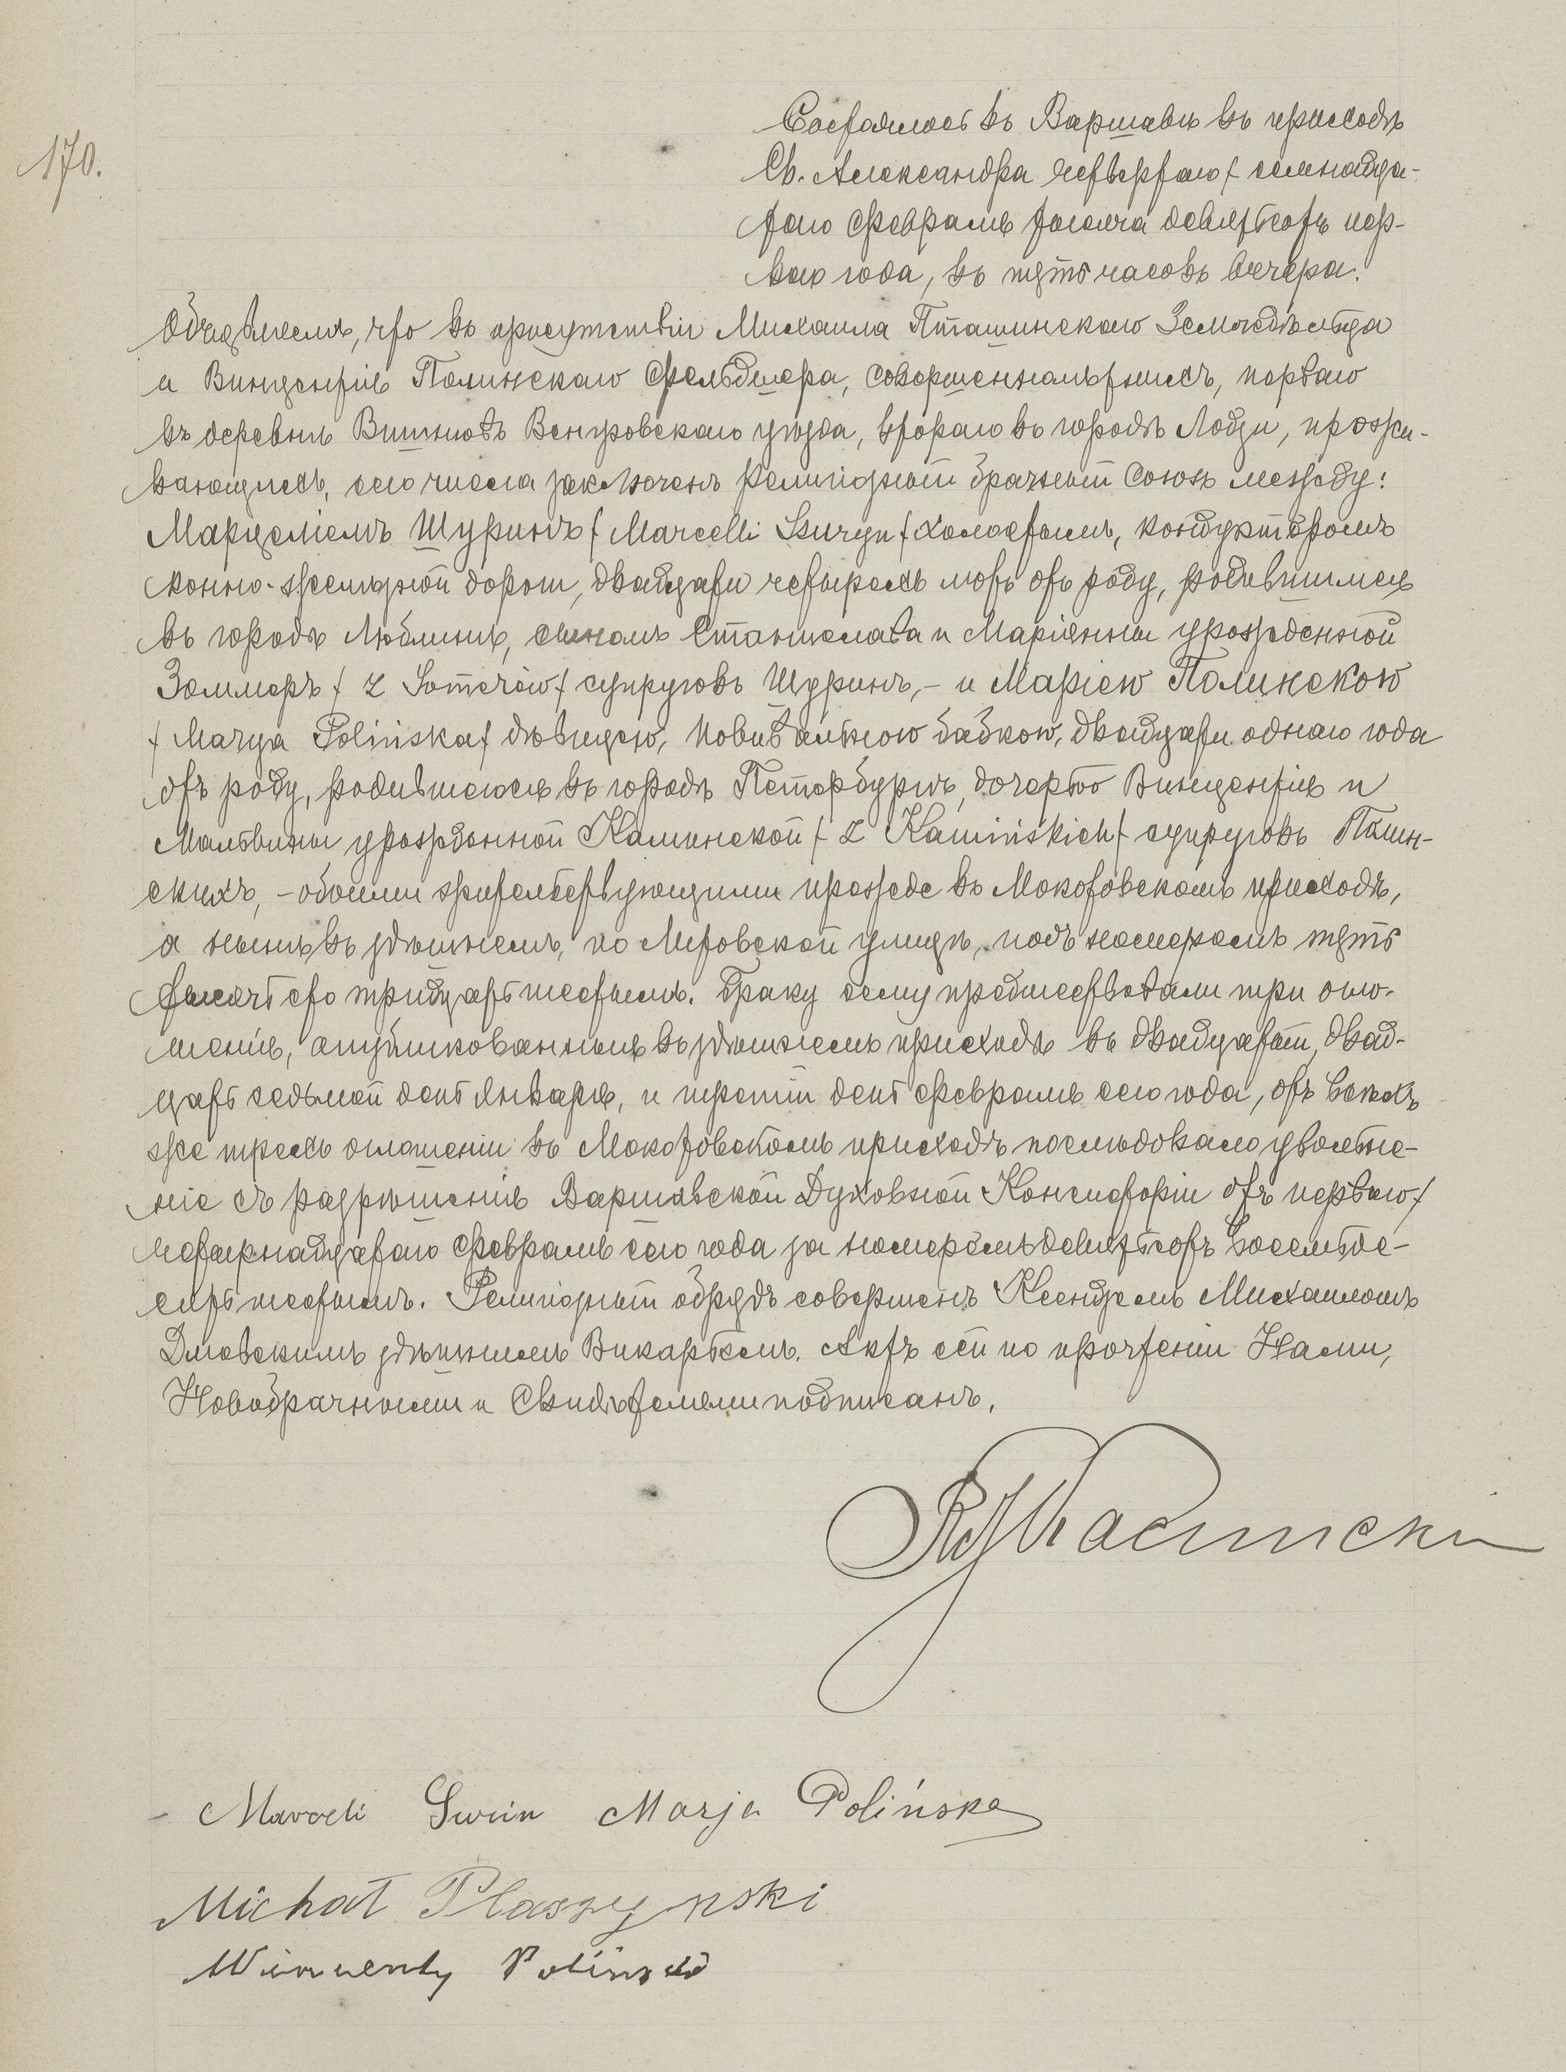 170.
Состоялось въ Варшавѣ въ приходѣ
Св. Александра четвертаго / семнадца-
таго Февраля тысяча девятьсотъ пер-
ваго года, въ пять часовъ вечера.
Объявляемъ, что въ присутствіи Михаила Пташинскаго Земледѣльца
и Винцентія Полинскаго Фельдшера, совершеннолѣтнихъ, перваго
въ деревнѣ Вишневѣ Венгровскаго уѣзда, втораго въ городѣ Лодзи, прожи-
вающихъ, сего числа заключенъ религіозный брачный союзъ между:
Марцеліемъ Щуринъ / Marcelli Szuryn / холостымъ, кондукторомъ
конно-желѣзной дороги, двадцати четырехъ лѣтъ отъ роду, родившимся
въ городѣ Люблинѣ, сыномъ Станислава и Маріянны урожденной
Зоммеръ / z Somerów / супруговъ Щуринъ, - и Маріею Полинскою
/ Marya Polińska / дѣвицею, повивальною бабкою, двадцати одного года
отъ роду, родившеюся въ городѣ Петербургѣ, дочерью Винцентія и
Мальвины урожденной Каминской / z Kamińskich / супруговъ Полин-
скихъ, - обоими жительствующими прежде въ Мокотовскомъ приходѣ,
а нынѣ въ здѣшнемъ, по улицѣ, подъ номеромъ пять
тысячъ сто тридцать шестымъ. Браку сему предшествовали три огло-
шенія, опубликованныя въ здѣшнемъ приходѣ въ двадцатый, двад-
цать седьмой день Января, и третій день Февраля сего года, отъ всѣхъ
же трехъ оглашеній въ Мокотовскомъ приходѣ послѣдовало увольне-
ніе съ разрѣшенія Варшавской Духовной Консисторіи отъ перваго /
четырнадцатаго Февраля сего года за номеромъ девятьсотъ восемьде-
сятъ шестымъ. Религіозный обрядъ совершенъ Ксендзомъ Михаиломъ
Дмовскимъ здѣшнимъ Викаріемъ. Актъ сей по прочтеніи Нами,
Новобрачными и Свидѣтелями подписанъ.
Marceli Szurin Marja Polińska
Michał Ptaszyński
Wincenty Poliński